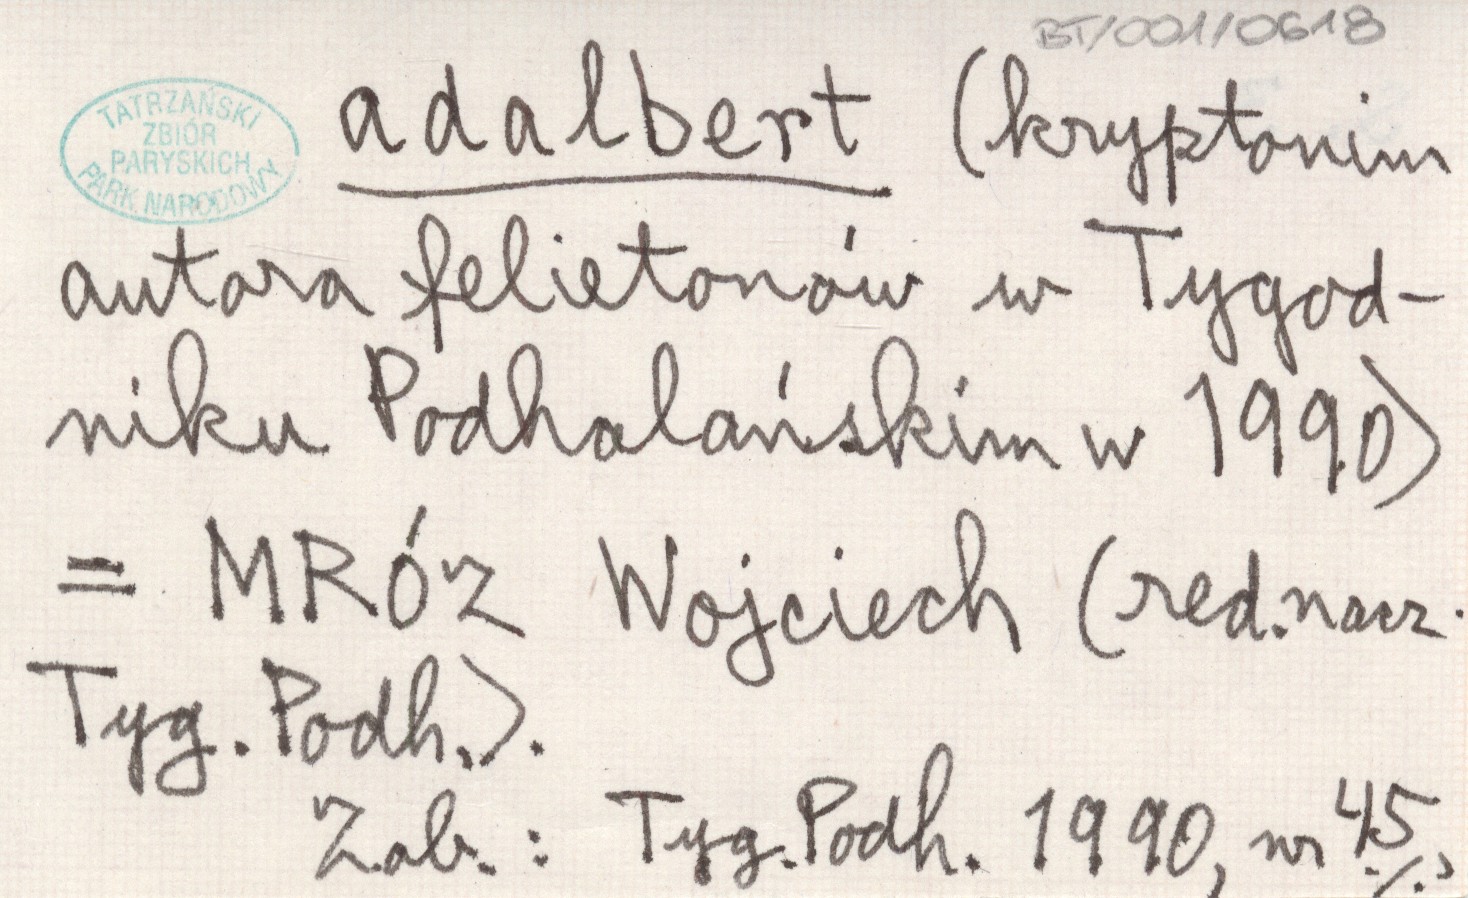 BT/001/0618
TATRZAŃSKI
ZBIÓR
PARYSKICH
PARK NARODOWY
adalbert (kryptonim
autora felietonów w Tygod-
niku Podhalańskim w 1990)
= MRÓZ Wojciech (red.nacz.
Tyg.Podh.).
Zob.: Tyg.Podh. 1990, nr 45